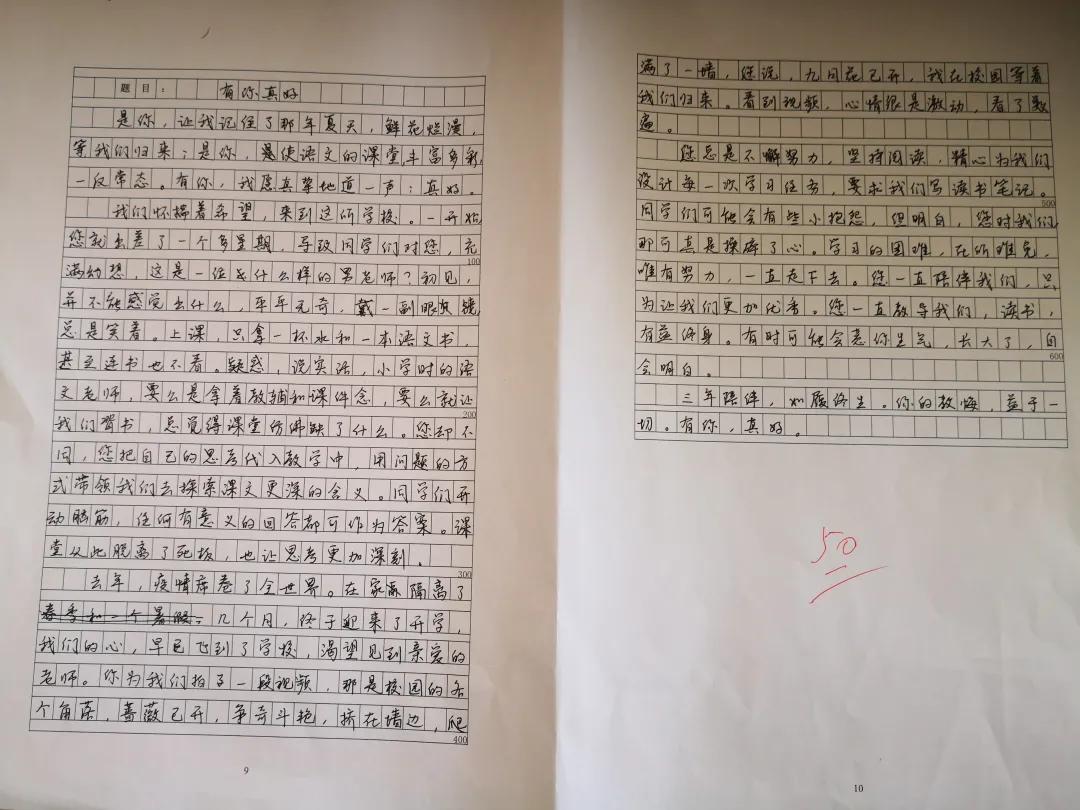 题目：有你真好
是你，让我记住了那年夏天，鲜花烂漫，
等我们归来；是你，是使语文的课堂丰富多彩，
一反常态。有你，我愿真挚地道一声：真好。
我们怀揣着希望，来到这所学校。一开始
您就出差了一个多星期，导致同学们对您，充
100
满幼想，这是一位是什么样的男老师？初见，
并不能感觉出什么，平平无奇，戴一副眼镜，
总是笑着。上课，只拿一杯水和一本语文书，
甚至连书也不看。疑惑，说实话，小学时的语
文老师，要么是拿着教辅和课件念，要么就让
200
我们背书，总觉得课堂仿佛缺了什么。您却不
同，您把自己的思考代入教学中，用问题的方
式带领我们去探索课文更深的含义。同学们开
动脑筋，任何有意义的回答都可作为答案。课
堂从此脱离了死板，也让思考更加深刻。
300
去年，疫情席卷了全世界。在家隔离了
春季和一个暑假。几个月，终于迎来了开学，
我们的心，早已飞到了学校，渴望见到亲爱的
老师。你为我们拍了一段视频，那是校园的各
个角落，蔷薇已开，争奇斗艳，挤在墙边，爬
400
9
满了一墙，您说，九间花已开，我在校园等着
我们归来。看到视频，心情很是激动，看了数
遍。
您总是不懈努力，坚持阅读，精心为我们
设计每一次学习任务，要求我们写读书笔记。
500
同学们可能会有些小抱怨，但明白，您对我们
那可真是操碎了心。学习的困难，在所难免，
唯有努力，一直走下去。您一直陪伴我们，只
为让我们更加优秀。您一直教导我们，读书，
有益终身。有时可能会惹你生气，长大了，自
600
会明白。
三年陪伴，如履终生。你的教悔，益于一
切。有你，真好。
50
10